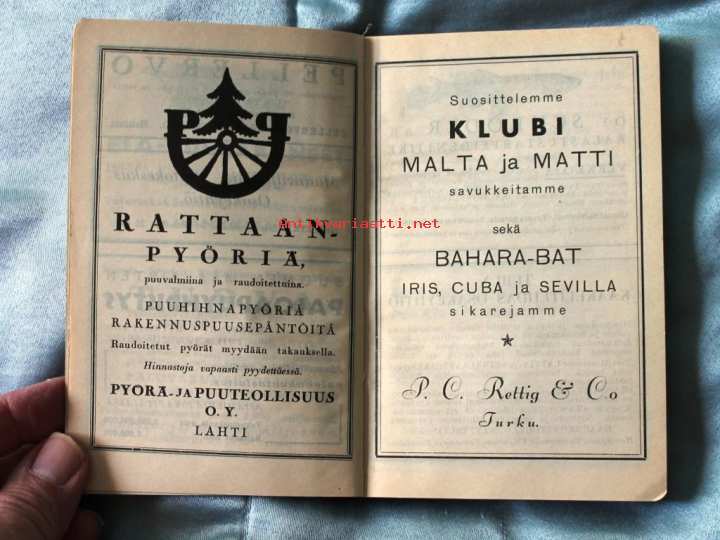 P P
RATTAAN-
PYÖRIÄ,
puuvalmiina ja raudoitettuina.
PUUHIHNAPYÖRIÄ
RAKENNUSPUUSEPÄNTÖITÄ
Raudoitetut pyörät myydään takauksella.
Hinnastoja vapaasti pyydettäessä.
PYÖRÄ- JA PUUTEOLLISUUS
O. Y.
LAHTI
Suosittelemme
KLUBI
MALTA ja MATTI
savukkeitamme
sekä
BAHARA-BAT
IRIS, CUBA ja SEVILLA
sikarejamme
P. C. Rettig & Co
Turku.
Antikvariaatti.net